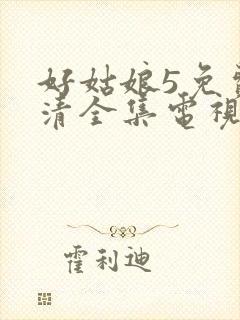 好姑娘5免
清全集電視
霍利迪